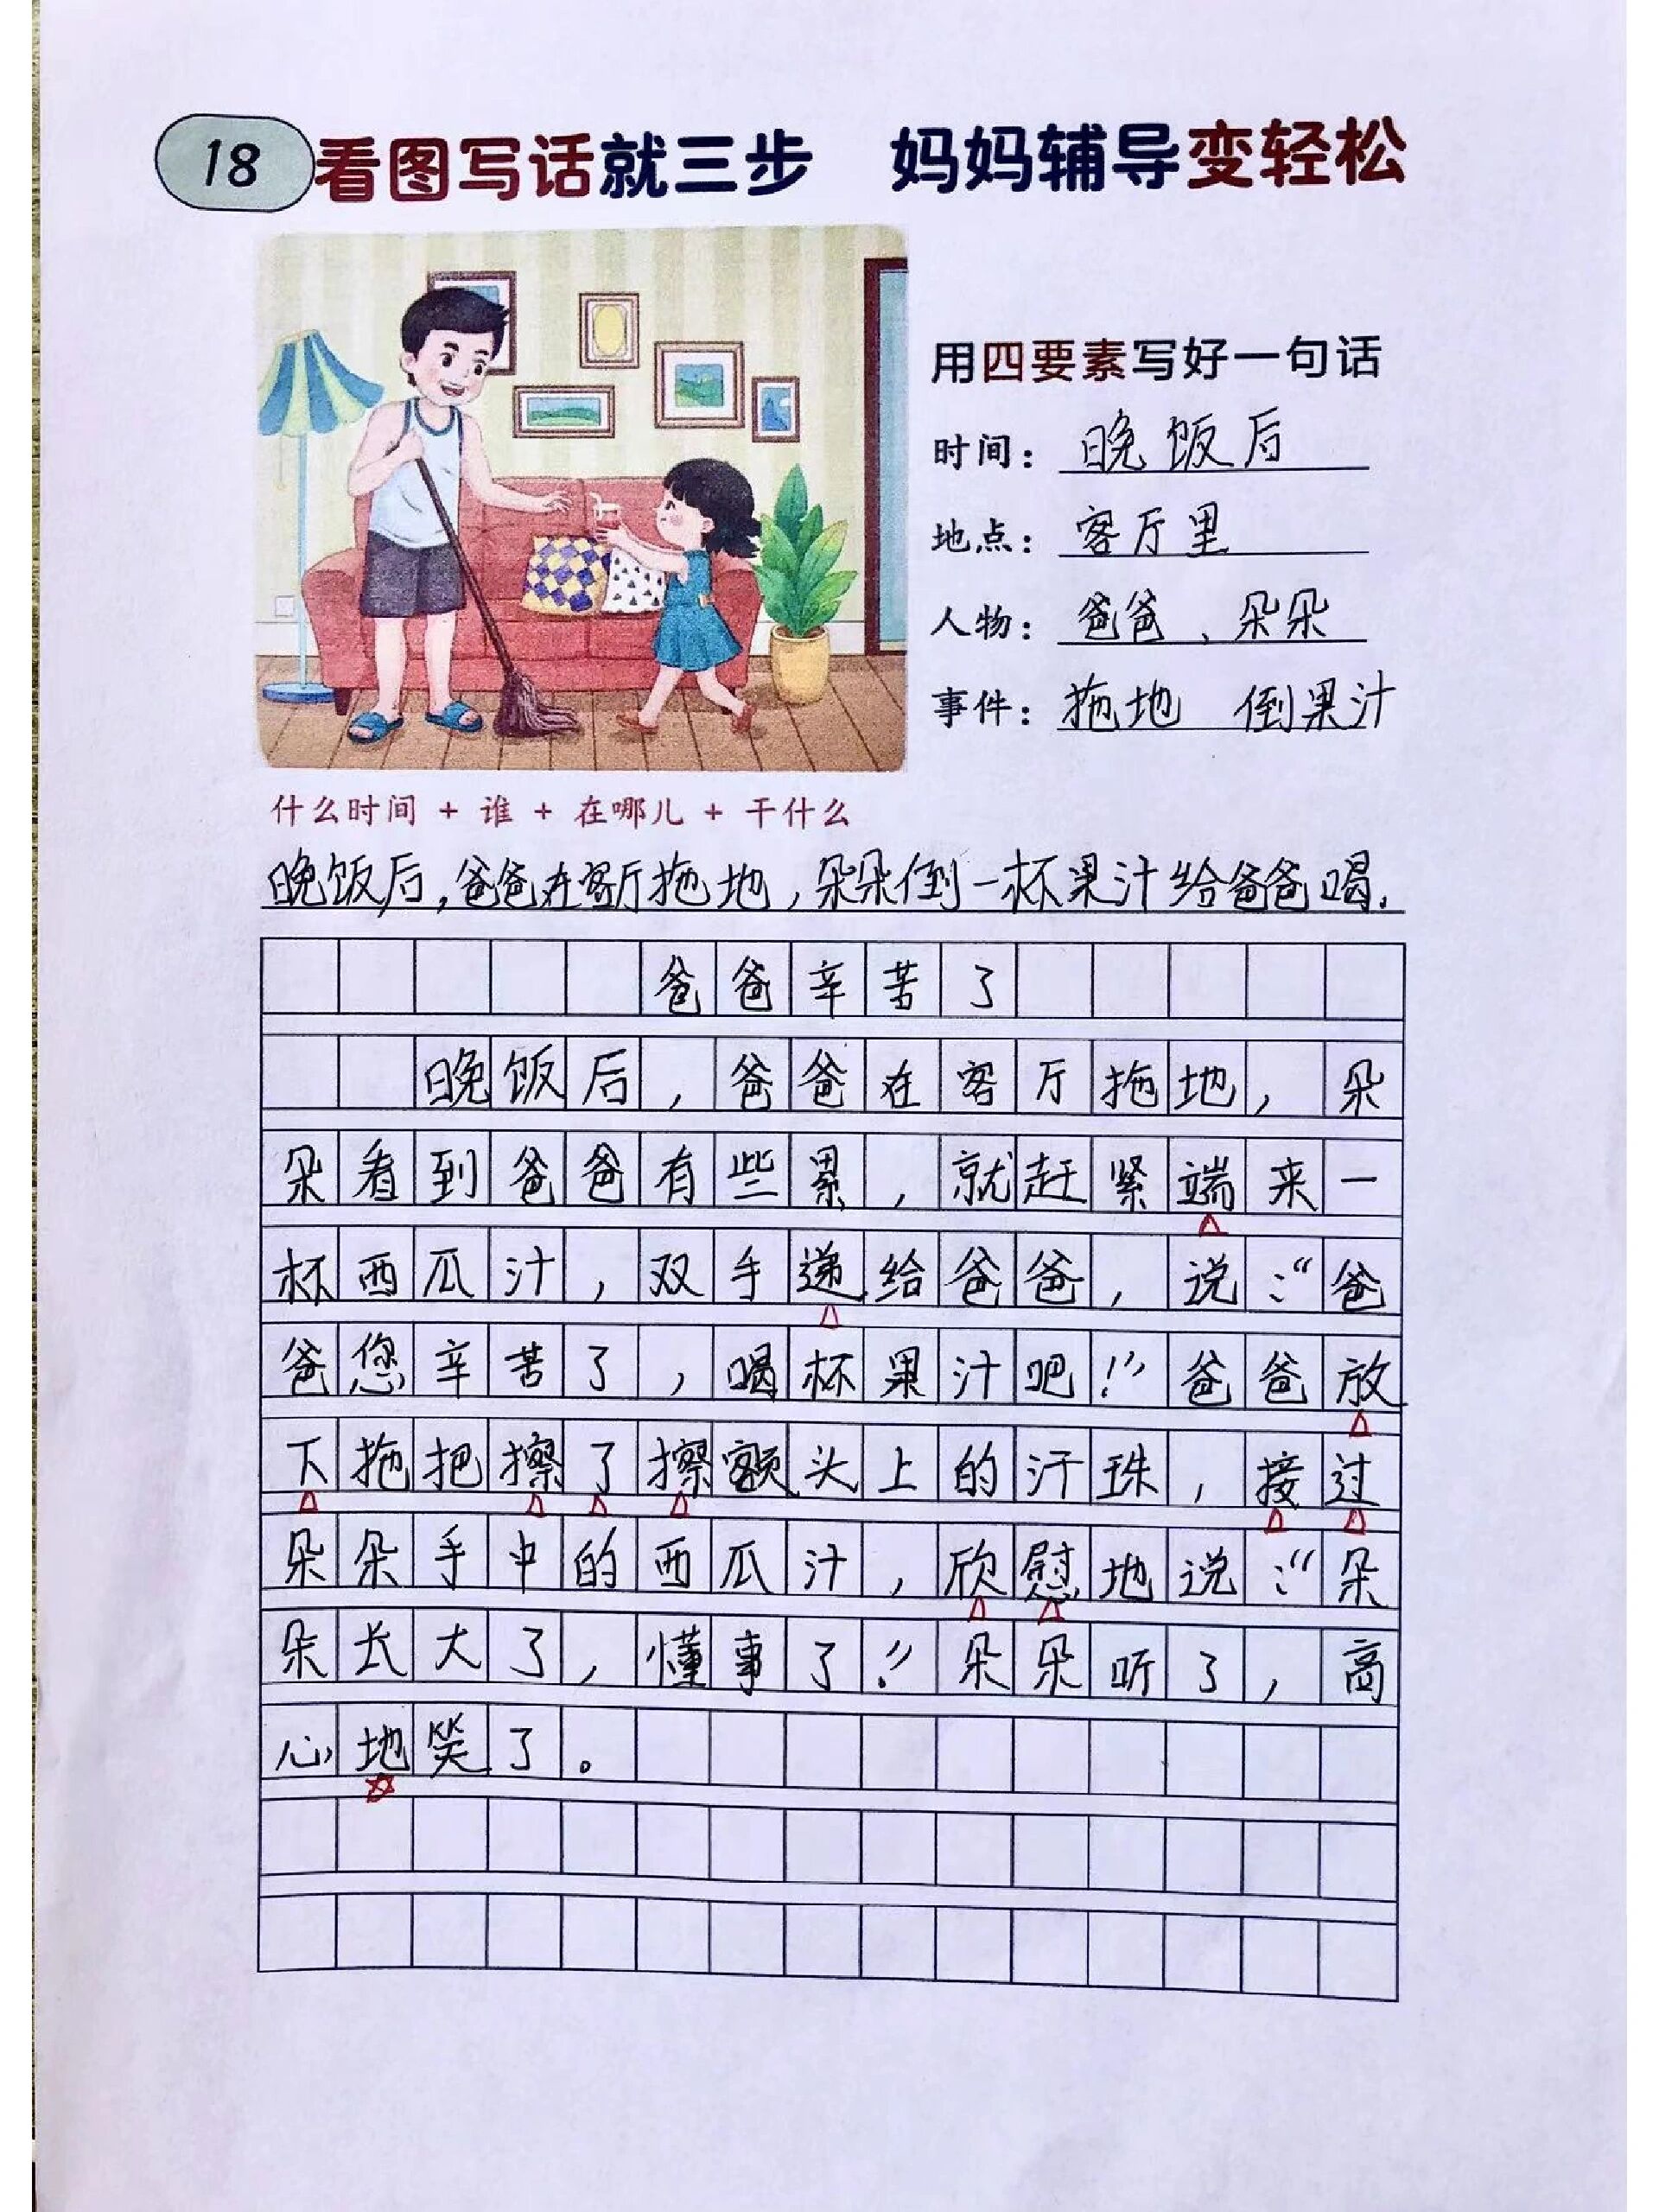 18 看图写话就三步 妈妈辅导变轻松
用四要素写好一句话
时间：晚饭后
地点：客厅里
人物：爸爸、朵朵
事件：拖地 倒果汁
什么时间 + 谁 + 在哪儿 + 干什么
晚饭后，爸爸在客厅拖地，朵朵倒一杯果汁给爸爸喝.
爸爸辛苦了
晚饭后，爸爸在客厅拖地，朵
朵看到爸爸有些累，就赶紧端来一
杯西瓜汁，双手递给爸爸，说：“爸
爸您辛苦了，喝杯果汁吧！”爸爸放
下拖把擦了擦额头上的汗珠，接过
朵朵手中的西瓜汁，欣慰地说：“朵
朵长大了，懂事了！”朵朵听了，高
心地笑了。